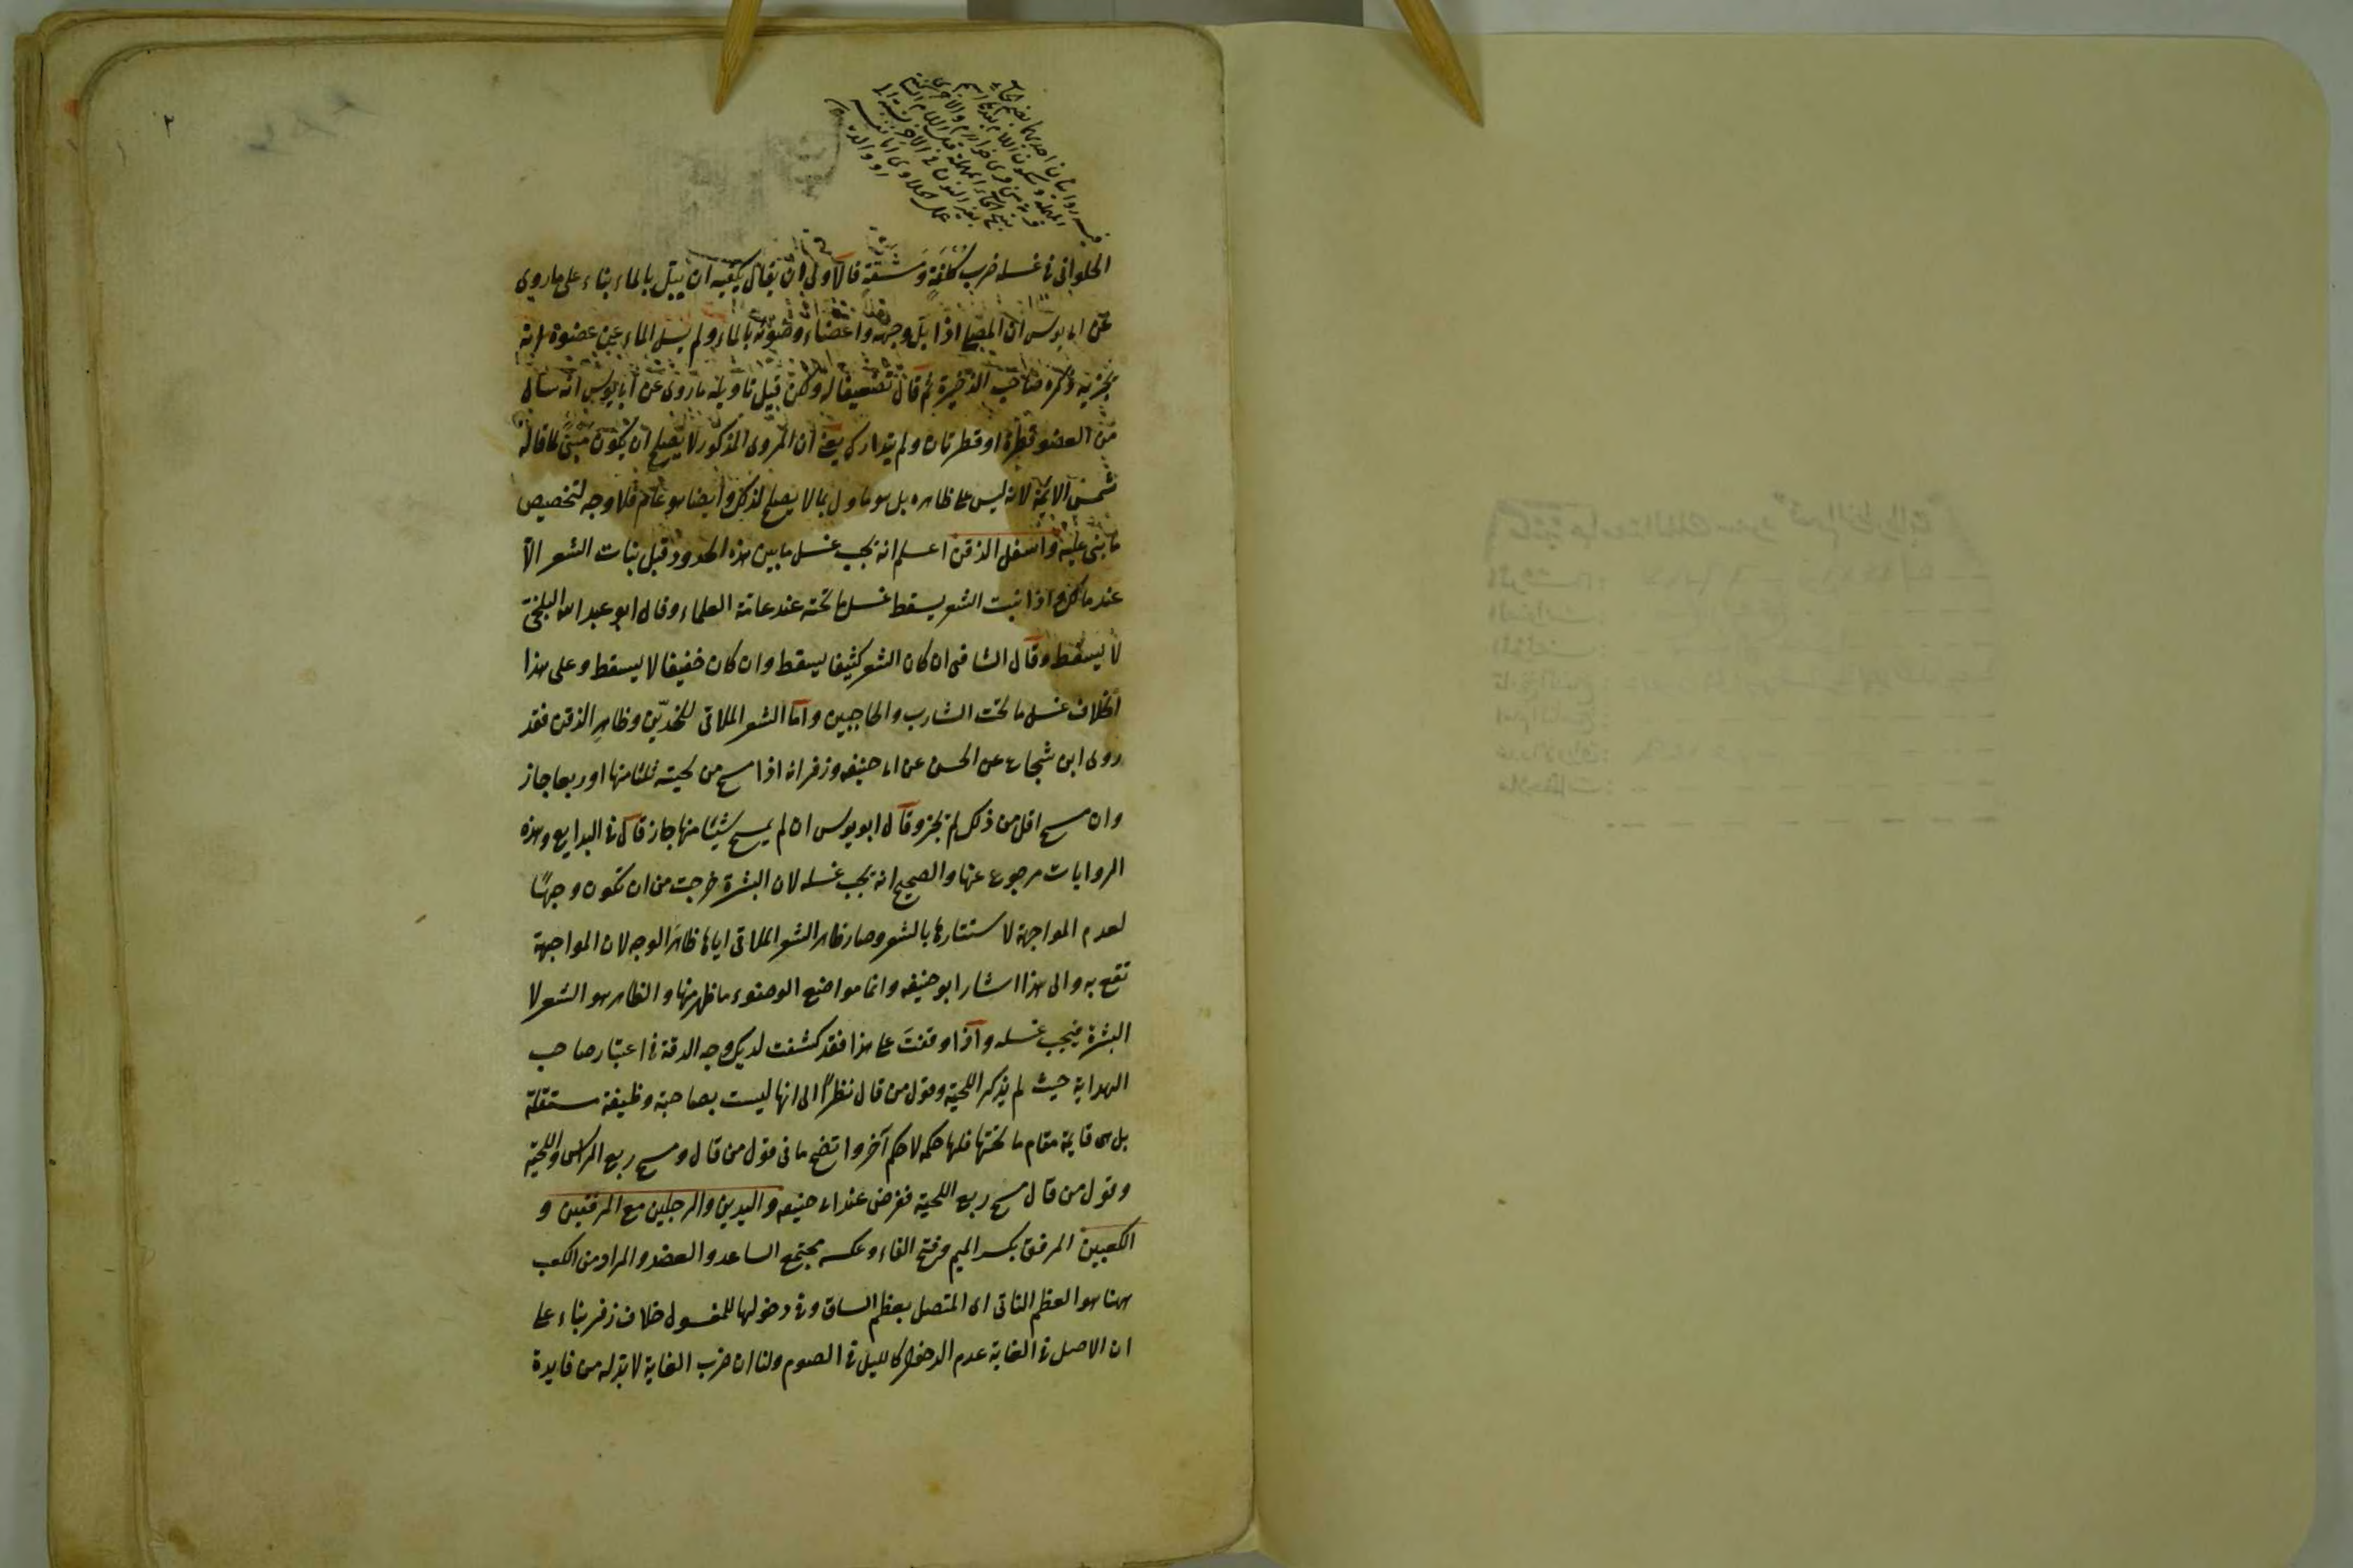 ٢
الحلوانى فى غسله ضرب كلفةٍ ومشقةٍ فالاولى ان يقال يكفيه ان يبتل بالماء بناء على ما روى
عن ابى يوسف ان المصلى اذا بلّ وجهه واعضاء وضوئه بالماء ولم يسل الماء عن عضوه انه
يجزيه ذكره صاحب الذخيرة ثم قال تضعيفا له ولكن قيل تاويله ما روى عن ابى يوسف انه سال
من العضو قطرة او قطرتان ولم يتدارك يعنى ان المروى المذكور لا يصلح ان يكون مبنى لما قاله
شمس الائمة لانه ليس على ظاهره بل هو ماول بما لا يصلح لذلك وايضا هو عام فلا وجه لتخصيص
ما بنى عليه واسفل الذقن اعلم انه يجب غسل ما بين هذه الحدود قبل نبات الشعر الا
عند مالك واذا نبت الشعر يسقط غسل ما تحته عند عامة العلماء وقال ابو عبد الله البلخى
لا يسقط وقال الشافعى ان كان الشعر كثيفا يسقط وان كان خفيفا لا يسقط وعلى هذا
الخلاف غسل ما تحت الشارب والحاجبين واما الشعر الملاقى للخدّين وظاهر الذقن فقد
روى ابن شجاع عن الحسن عن ابى حنيفه وزفر انه اذا مسح من لحيته ثلثا منها او ربعا جاز
وان مسح اقل من ذلك لم يجز وقال ابو يوسف ان لم يمسح شيئا منها جاز قال فى البدايع وهذه
الروايات مرجوع عنها والصحيح انه يجب غسله لان البشرة خرجت من ان تكون وجهًا
لعدم المواجهة لاستتارها بالشعر وصار ظاهر الشعر الملاقى اياها ظاهر الوجه لان المواجهة
تقع به والى هذا اشار ابو حنيفه وانما مواضع الوضوء ما ظهر منها والظاهر هو الشعر لا
البشرة فيجب غسله واذا وقفت على هذا فقد كشفت لديك وجه الدقة فى اعتبار صاحب
الهداية حيث لم يذكر اللحية وقول من قال نظرًا الى انها ليست بصاحبة وظيفة مستقلة
بل هى قايمة مقام ما تحتها فلها حكمه لا حكم آخر واتضح ما فى قول من قال ومسح ربع الراس واللحية
وقول من قال مسح ربع اللحية فغرض عند ابى حنيفه واليدين والرجلين مع المرفقين و
الكعبين المرفق بكسر الميم وفتح الفاء وعكسه مجتمع الساعد والعضد والمراد من الكعب
ههنا هو العظم الناتى اى المتصل بعظم الساق وفى دخولها للمغسول خلاف زفر بناء على
ان الاصل فى الغاية عدم الدخول كالليل فى الصوم ولنا ان ضرب الغاية لا بد له من فايدة